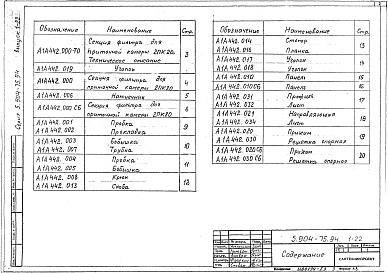 Серия 5.904-75.94 Выпуск 1-22
Обозначение Наименование Стр.
А1А442.000-ТО Секция фильтра для
приточной камеры 2ПК20.
Техническое описание 3
А1А442.019 Уголок
А1А442.000 Секция фильтра для
приточной камеры 2ПК20 4
А1А442.006 5
А1А442.000 СБ Секция фильтра для
приточной камеры 2ПК20 6
А1А442.001 Пробка 9
А1А442.002 Прокладка
А1А442.003 Бобышка 10
А1А442.007 Трубка
А1А442.004 Пробка 11
А1А442.005 Бобышка
А1А442.008 Крюк 12
А1А442.013 Скоба
Обозначение Наименование Стр.
А1А442.014 13
А1А442.016 Планка
А1А442.017 Уголок 14
А1А442.018 Уголок
А1А442.010 Панель 15
А1А442.010СБ Панель 16
А1А442.031 17
А1А442.032 Лист
А1А442.021 Направляющая 18
А1А442.034 Лист
А1А442.020 Прижим 19
А1А442.030 Решетка опорная
А1А442.020СБ Прижим 20
А1А442.030СБ Решетка опорная
5.904-75.94 1-22
Содержание
САНТЕХНИИПРОЕКТ